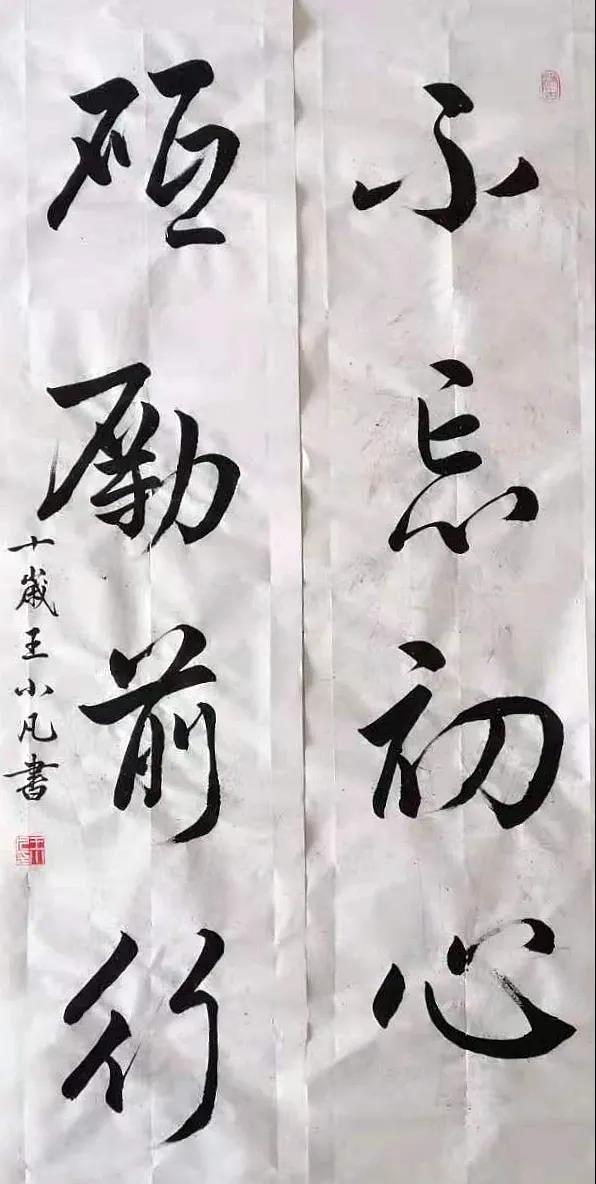 不忘初心
砥勵前行
十歲王小凡書